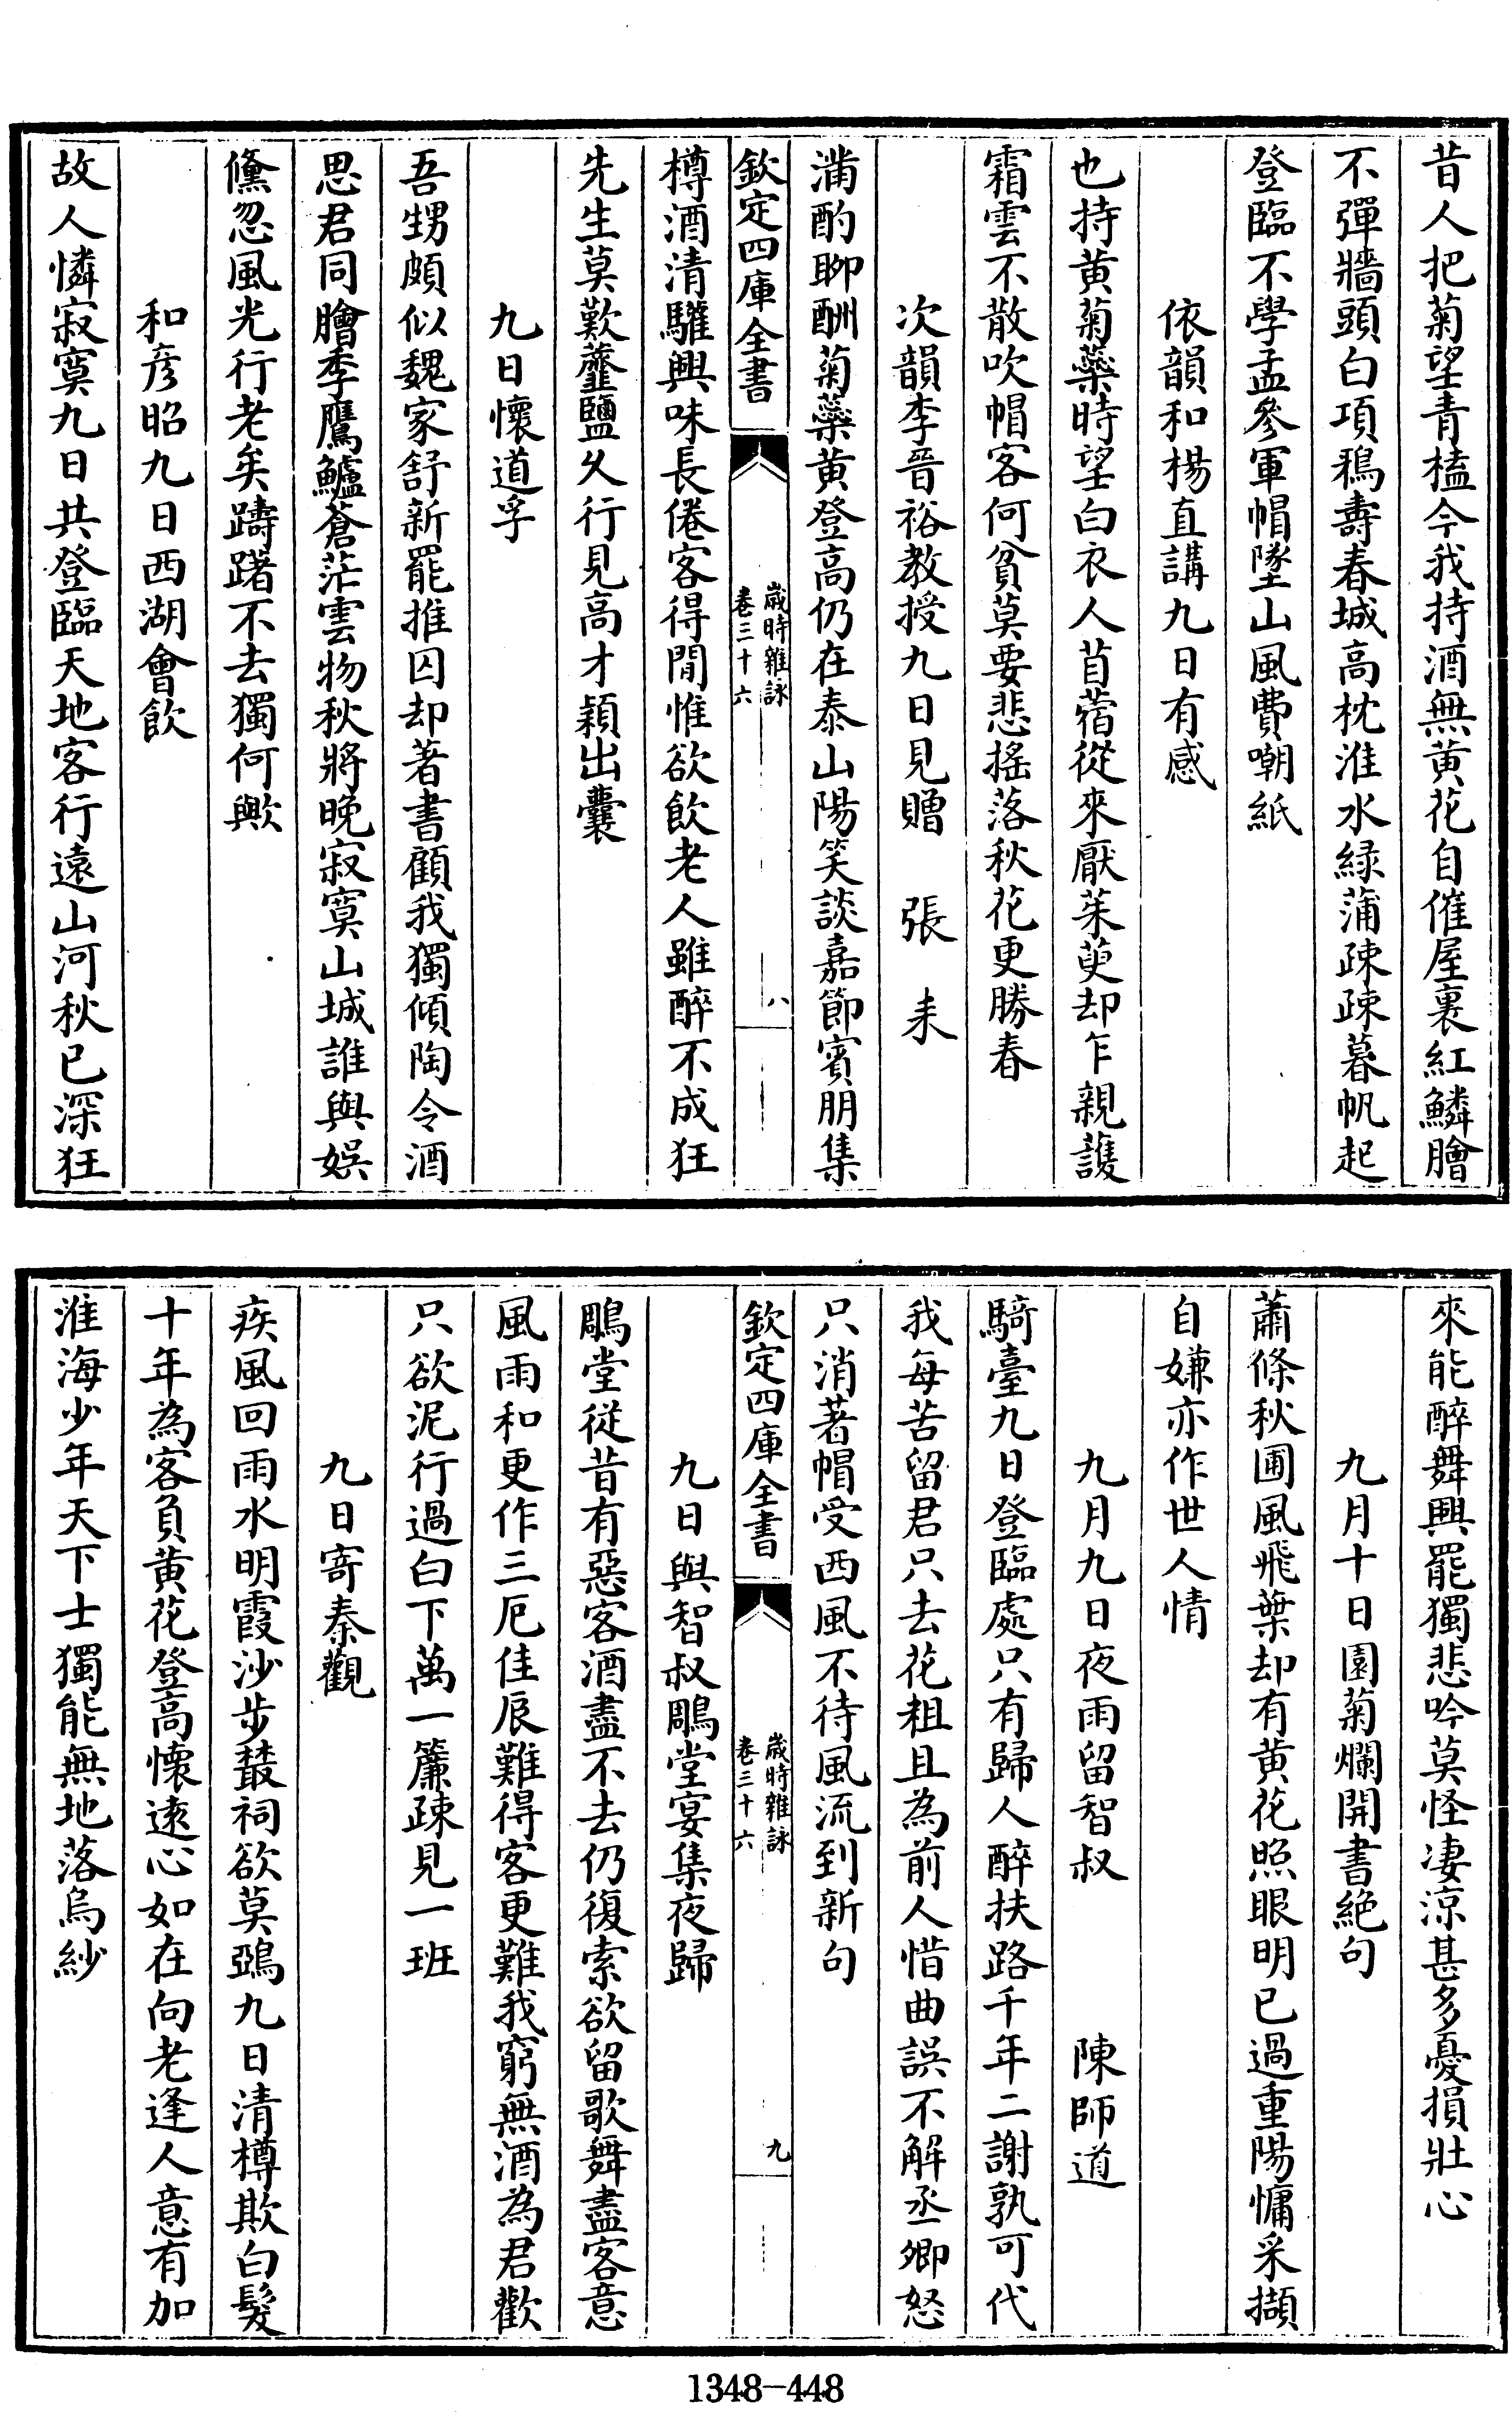 昔人把菊望青榼今我持酒無黄花自催屋裏紅鱗膾
不彈牆頭白項鵶壽春城高枕淮水緑蒲疎疎暮帆起
登臨不學孟參軍帽墜山風費嘲紙
依韻和楊直講九日有感
也持黄菊蘂時望白衣人苜蓿從來厭茱萸却乍親䕶
霜雲不散吹帽客何貧莫要悲搖落秋花更勝春
次韻李晉裕教授九日見贈 張耒
滿酌聊酬菊蘂黄登高仍在泰山陽笑談嘉節賓朋集
欽定四庫全書
歲時雜詠
卷三十六
八
樽酒清驩興味長倦客得閒惟欲飲老人雖醉不成狂
先生莫歎虀鹽乆行見高才穎出囊
九日懷道孚
吾甥頗似魏家舒新罷推囚却著書顧我獨傾陶令酒
思君同膾季鷹鱸蒼茫雲物秋將晚寂寞山城誰與娱
儵忽風光行老矣躊躇不去獨何歟
和彦昭九日西湖會飲
故人憐寂寞九日共登臨天地客行遠山河秋已深狂
來能醉舞興罷獨悲吟莫怪凄凉甚多憂損壯心
九月十日園菊爛開書絶句
蕭條秋圃風飛葉却有黄花照眼明已過重陽慵采擷
自嫌亦作世人情
九月九日夜雨留智叔 陳師道
騎臺九日登臨處只有歸人醉扶路千年二謝孰可代
我每苦留君只去花粗且為前人惜曲誤不解丞卿怒
只消著帽受西風不待風流到新句
欽定四庫全書
歲時雜詠
卷三十六
九
九日與智叔鵰堂宴集夜歸
鵰堂從昔有惡客酒盡不去仍復索欲留歌舞盡客意
風雨和更作三厄佳辰難得客更難我窮無酒為君歡
只欲泥行過白下萬一簾疎見一班
九日寄秦觀
疾風回雨水明霞沙步叢祠欲莫鵶九日清樽欺白髮
十年為客負黄花登高懷逺心如在向老逢人意有加
淮海少年天下士獨能無地落烏紗
1348-448